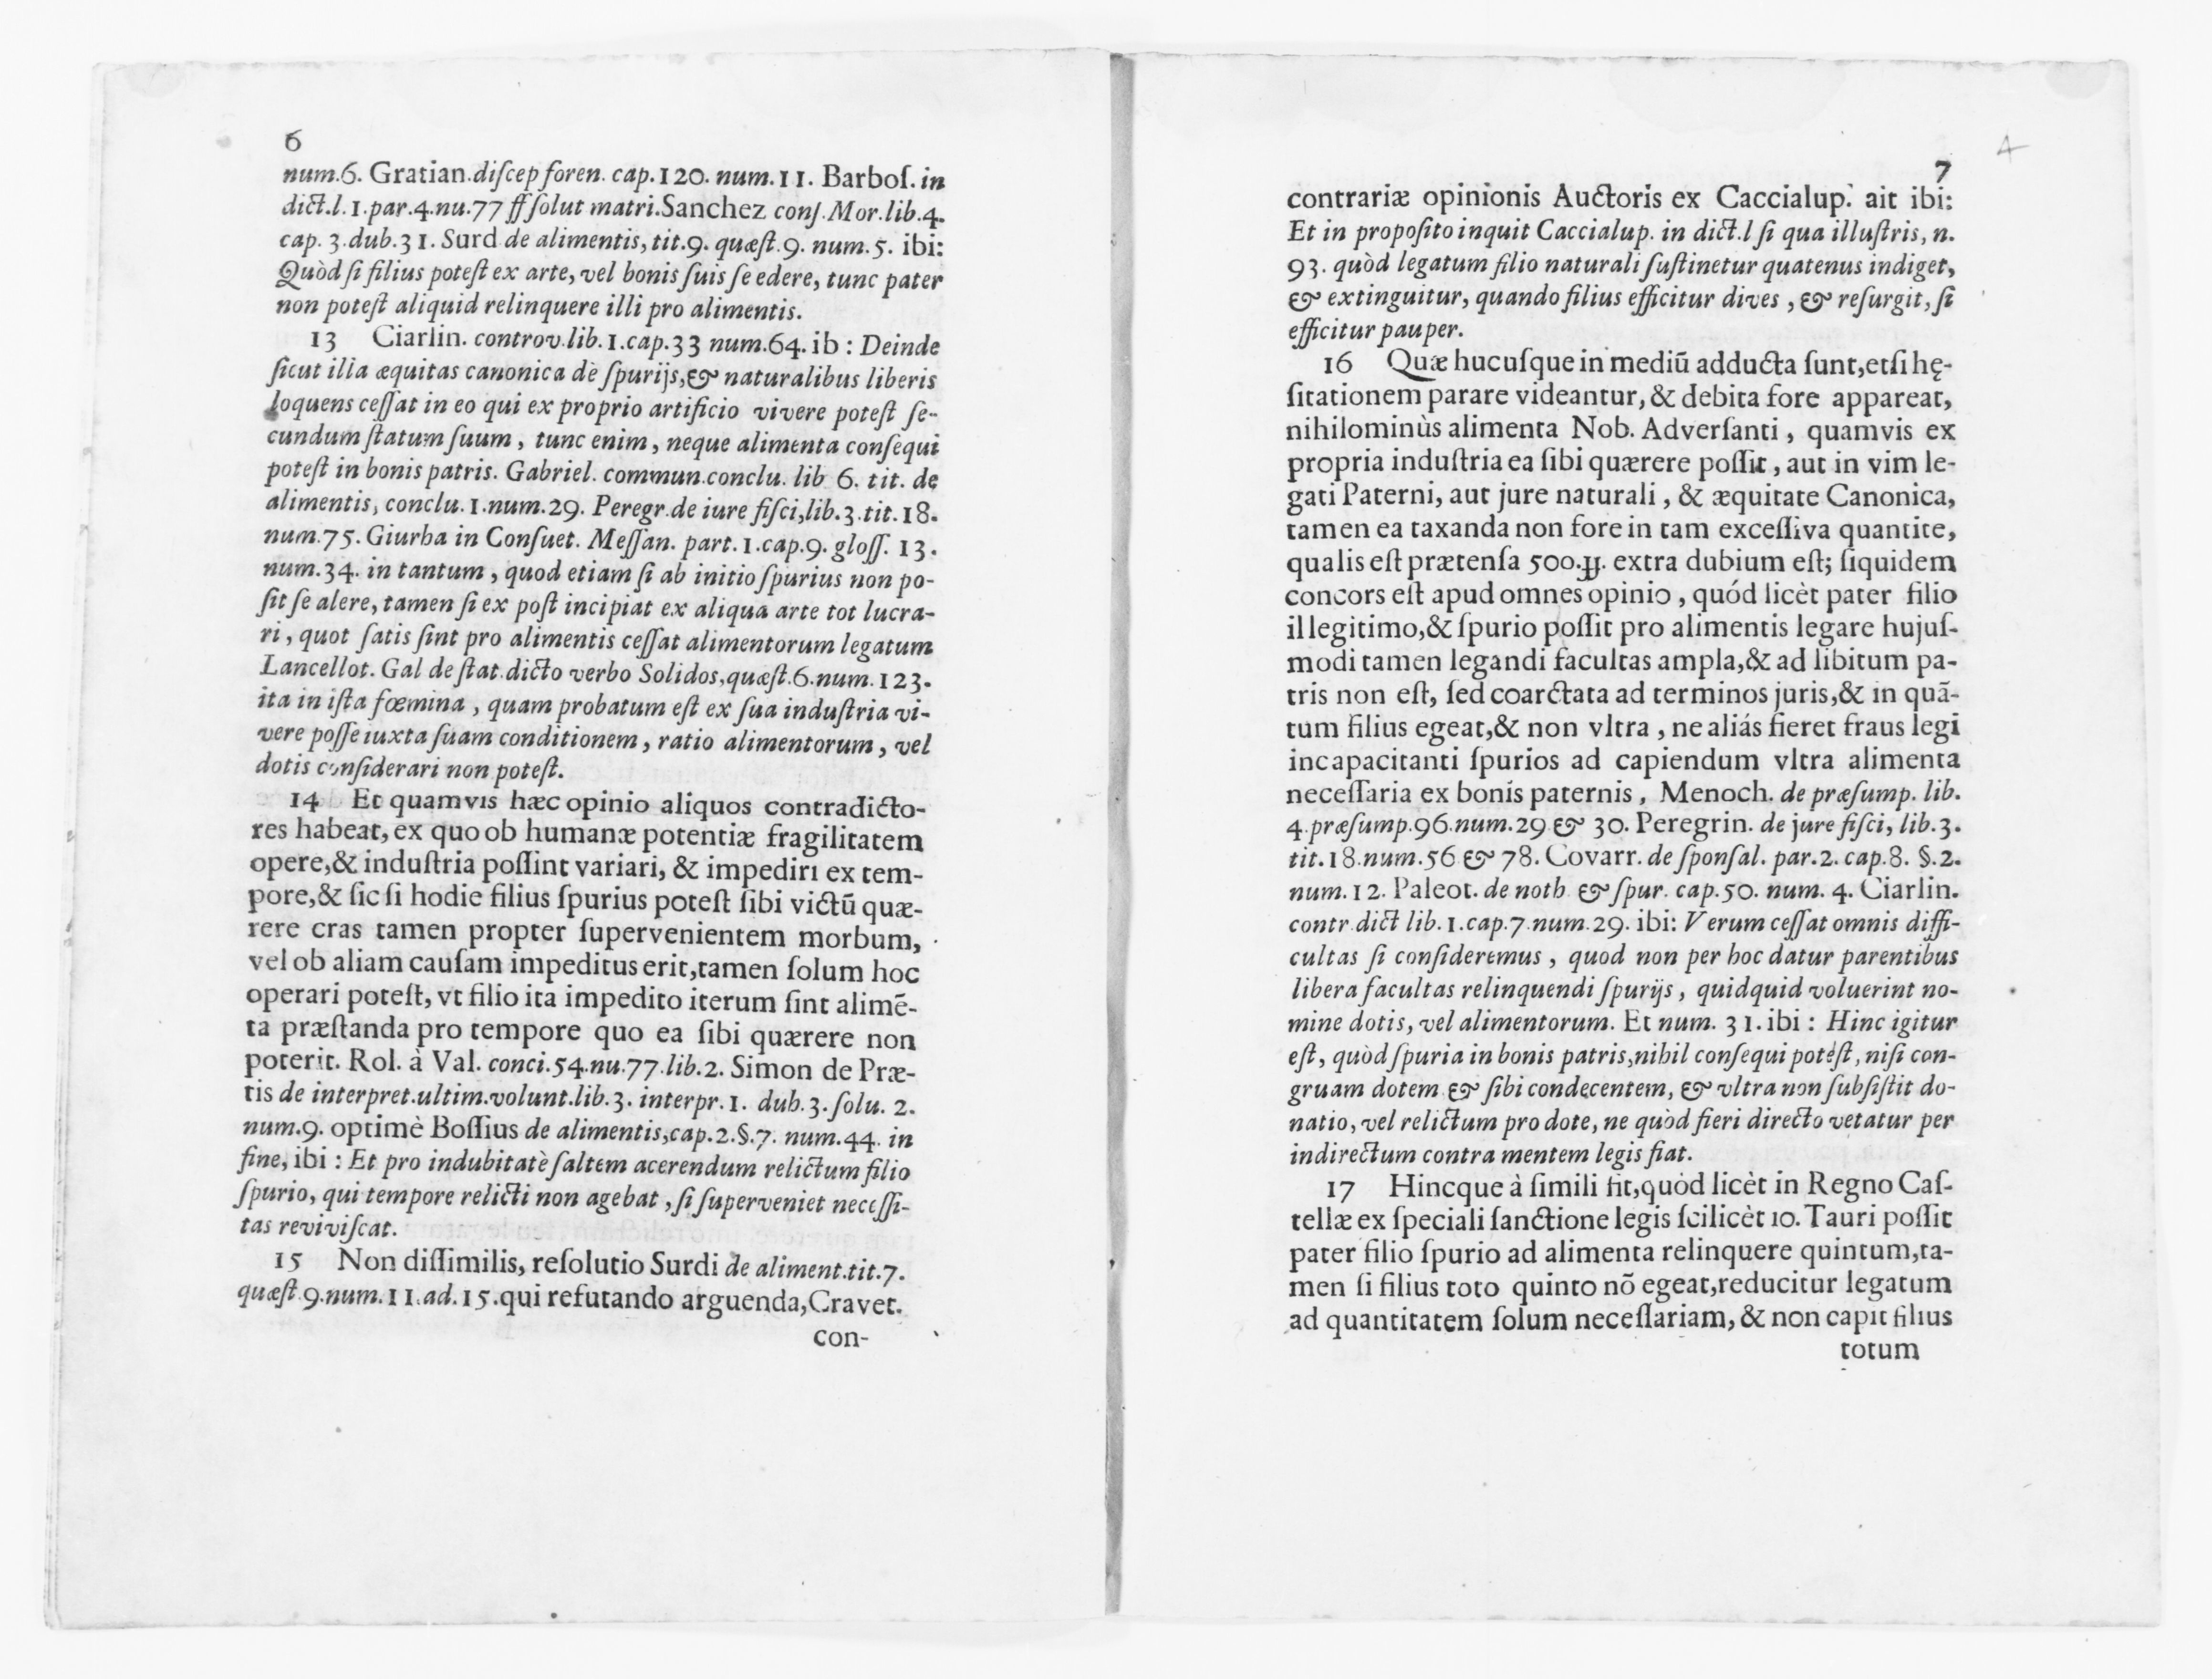 6
num.6. Gratian.diſcep foren. cap.120. num.11. Barboſ. in
dict.l.1.par.4.nu.77 ff ſolut matri.Sanchez conſ.Mor.lib.4.
cap. 3.dub.31. Surd de alimentis, tit.9. quæſt.9. num.5. ibi:
Quòd ſi filius poteſt ex arte, vel bonis ſuis ſe edere, tunc pater
non poteſt aliquid relinquere illi pro alimentis.
13 Ciarlin. controv.lib.1.cap.33 num.64. ib : Deinde
ſicut illa æquitas canonica dè ſpurijs,& naturalibus liberis
loquens ceſſat in eo qui ex proprio artificio vivere poteſt ſe-
cundum ſtatum ſuum, tunc enim, neque alimenta conſequi
poteſt in bonis patris. Gabriel. commun.conclu. lib 6. tit. de
alimentis, conclu.1.num.29. Peregr.de iure fiſci,lib.3.tit.18.
num.75. Giurba in Conſuet. Meſſan. part.1.cap.9. gloſſ. 13.
num.34. in tantum, quod etiam ſi ab initio ſpurius non po-
ſit ſe alere, tamen ſi ex poſt incipiat ex aliqua arte tot lucra-
ri, quot ſatis ſint pro alimentis ceſſat alimentorum legatum
Lancellot. Gal de ſtat.dicto verbo Solidos,quæſt.6.num.123.
ita in iſta fœmina, quam probatum eſt ex ſua induſtria vi-
vere poſſe iuxta ſuam conditionem, ratio alimentorum, vel
dotis conſiderari non poteſt.
14 Et quamvis hæc opinio aliquos contradicto-
res habeat, ex quo ob humanæ potentiæ fragilitatem
opere,& induſtria poſſint variari, & impediri ex tem-
pore,& ſic ſi hodie filius ſpurius poteſt ſibi victū quæ-
rere cras tamen propter ſupervenientem morbum,
vel ob aliam cauſam impeditus erit,tamen ſolum hoc
operari poteſt, vt filio ita impedito iterum ſint alimē-
ta præſtanda pro tempore quo ea ſibi quærere non
poterit. Rol. à Val. conci.54.nu.77.lib.2. Simon de Præ-
tis de interpret.ultim.volunt.lib.3. interpr.1. dub.3.ſolu. 2.
num.9. optimè Boſſius de alimentis,cap.2.§.7. num.44. in
fine, ibi : Et pro indubitatè ſaltem acerendum relictum filio
ſpurio, qui tempore relicti non agebat, ſi ſuperveniet neceſſi-
tas reviviſcat.
15 Non diſſimilis, reſolutio Surdi de aliment.tit.7.
quæſt.9.num.11.ad.15.qui refutando arguenda,Cravet.
con-
4
7
contrariæ opinionis Auctoris ex Caccialup. ait ibi:
Et in propoſito inquit Caccialup. in dict.l ſi qua illuſtris, n.
93. quòd legatum filio naturali ſuſtinetur quatenus indiget,
& extinguitur, quando filius efficitur dives, & reſurgit, ſi
efficitur pauper.
16 Quæ hucuſque in mediū adducta ſunt,etſi hę-
ſitationem parare videantur, & debita fore appareat,
nihilominùs alimenta Nob. Adverſanti, quamvis ex
propria induſtria ea ſibi quærere poſſit, aut in vim le-
gati Paterni, aut jure naturali, & æquitate Canonica,
tamen ea taxanda non fore in tam exceſſiva quantite,
qualis eſt prætenſa 500. extra dubium eſt; ſiquidem
concors eſt apud omnes opinio, quód licèt pater filio
illegitimo,& ſpurio poſſit pro alimentis legare hujuſ-
modi tamen legandi facultas ampla,& ad libitum pa-
tris non eſt, ſed coarctata ad terminos juris,& in quā-
tum filius egeat,& non vltra, ne aliás fieret fraus legi
incapacitanti ſpurios ad capiendum vltra alimenta
neceſſaria ex bonis paternis, Menoch. de præſump. lib.
4.præſump.96.num.29 & 30. Peregrin. de jure fiſci, lib.3.
tit.18.num.56 & 78. Covarr. de ſponſal. par.2. cap.8. §.2.
num.12. Paleot. de noth & ſpur. cap.50. num. 4. Ciarlin.
contr.dict lib.1.cap.7.num.29. ibi: Verum ceſſat omnis diffi-
cultas ſi conſideremus, quod non per hoc datur parentibus
libera facultas relinquendi ſpurijs, quidquid voluerint no-
mine dotis, vel alimentorum. Et num. 31.ibi : Hinc igitur
eſt, quòd ſpuria in bonis patris,nihil conſequi poteſt, niſi con-
gruam dotem & ſibi condecentem, & vltra non ſubſiſtit do-
natio, vel relictum pro dote, ne quòd fieri directo vetatur per
indirectum contra mentem legis fiat.
17 Hincque à ſimili fit,quòd licèt in Regno Caſ-
tellæ ex ſpeciali ſanctione legis ſcilicèt 10. Tauri poſſit
pater filio ſpurio ad alimenta relinquere quintum,ta-
men ſi filius toto quinto nō egeat,reducitur legatum
ad quantitatem ſolum neceſſariam, & non capit filius
totum